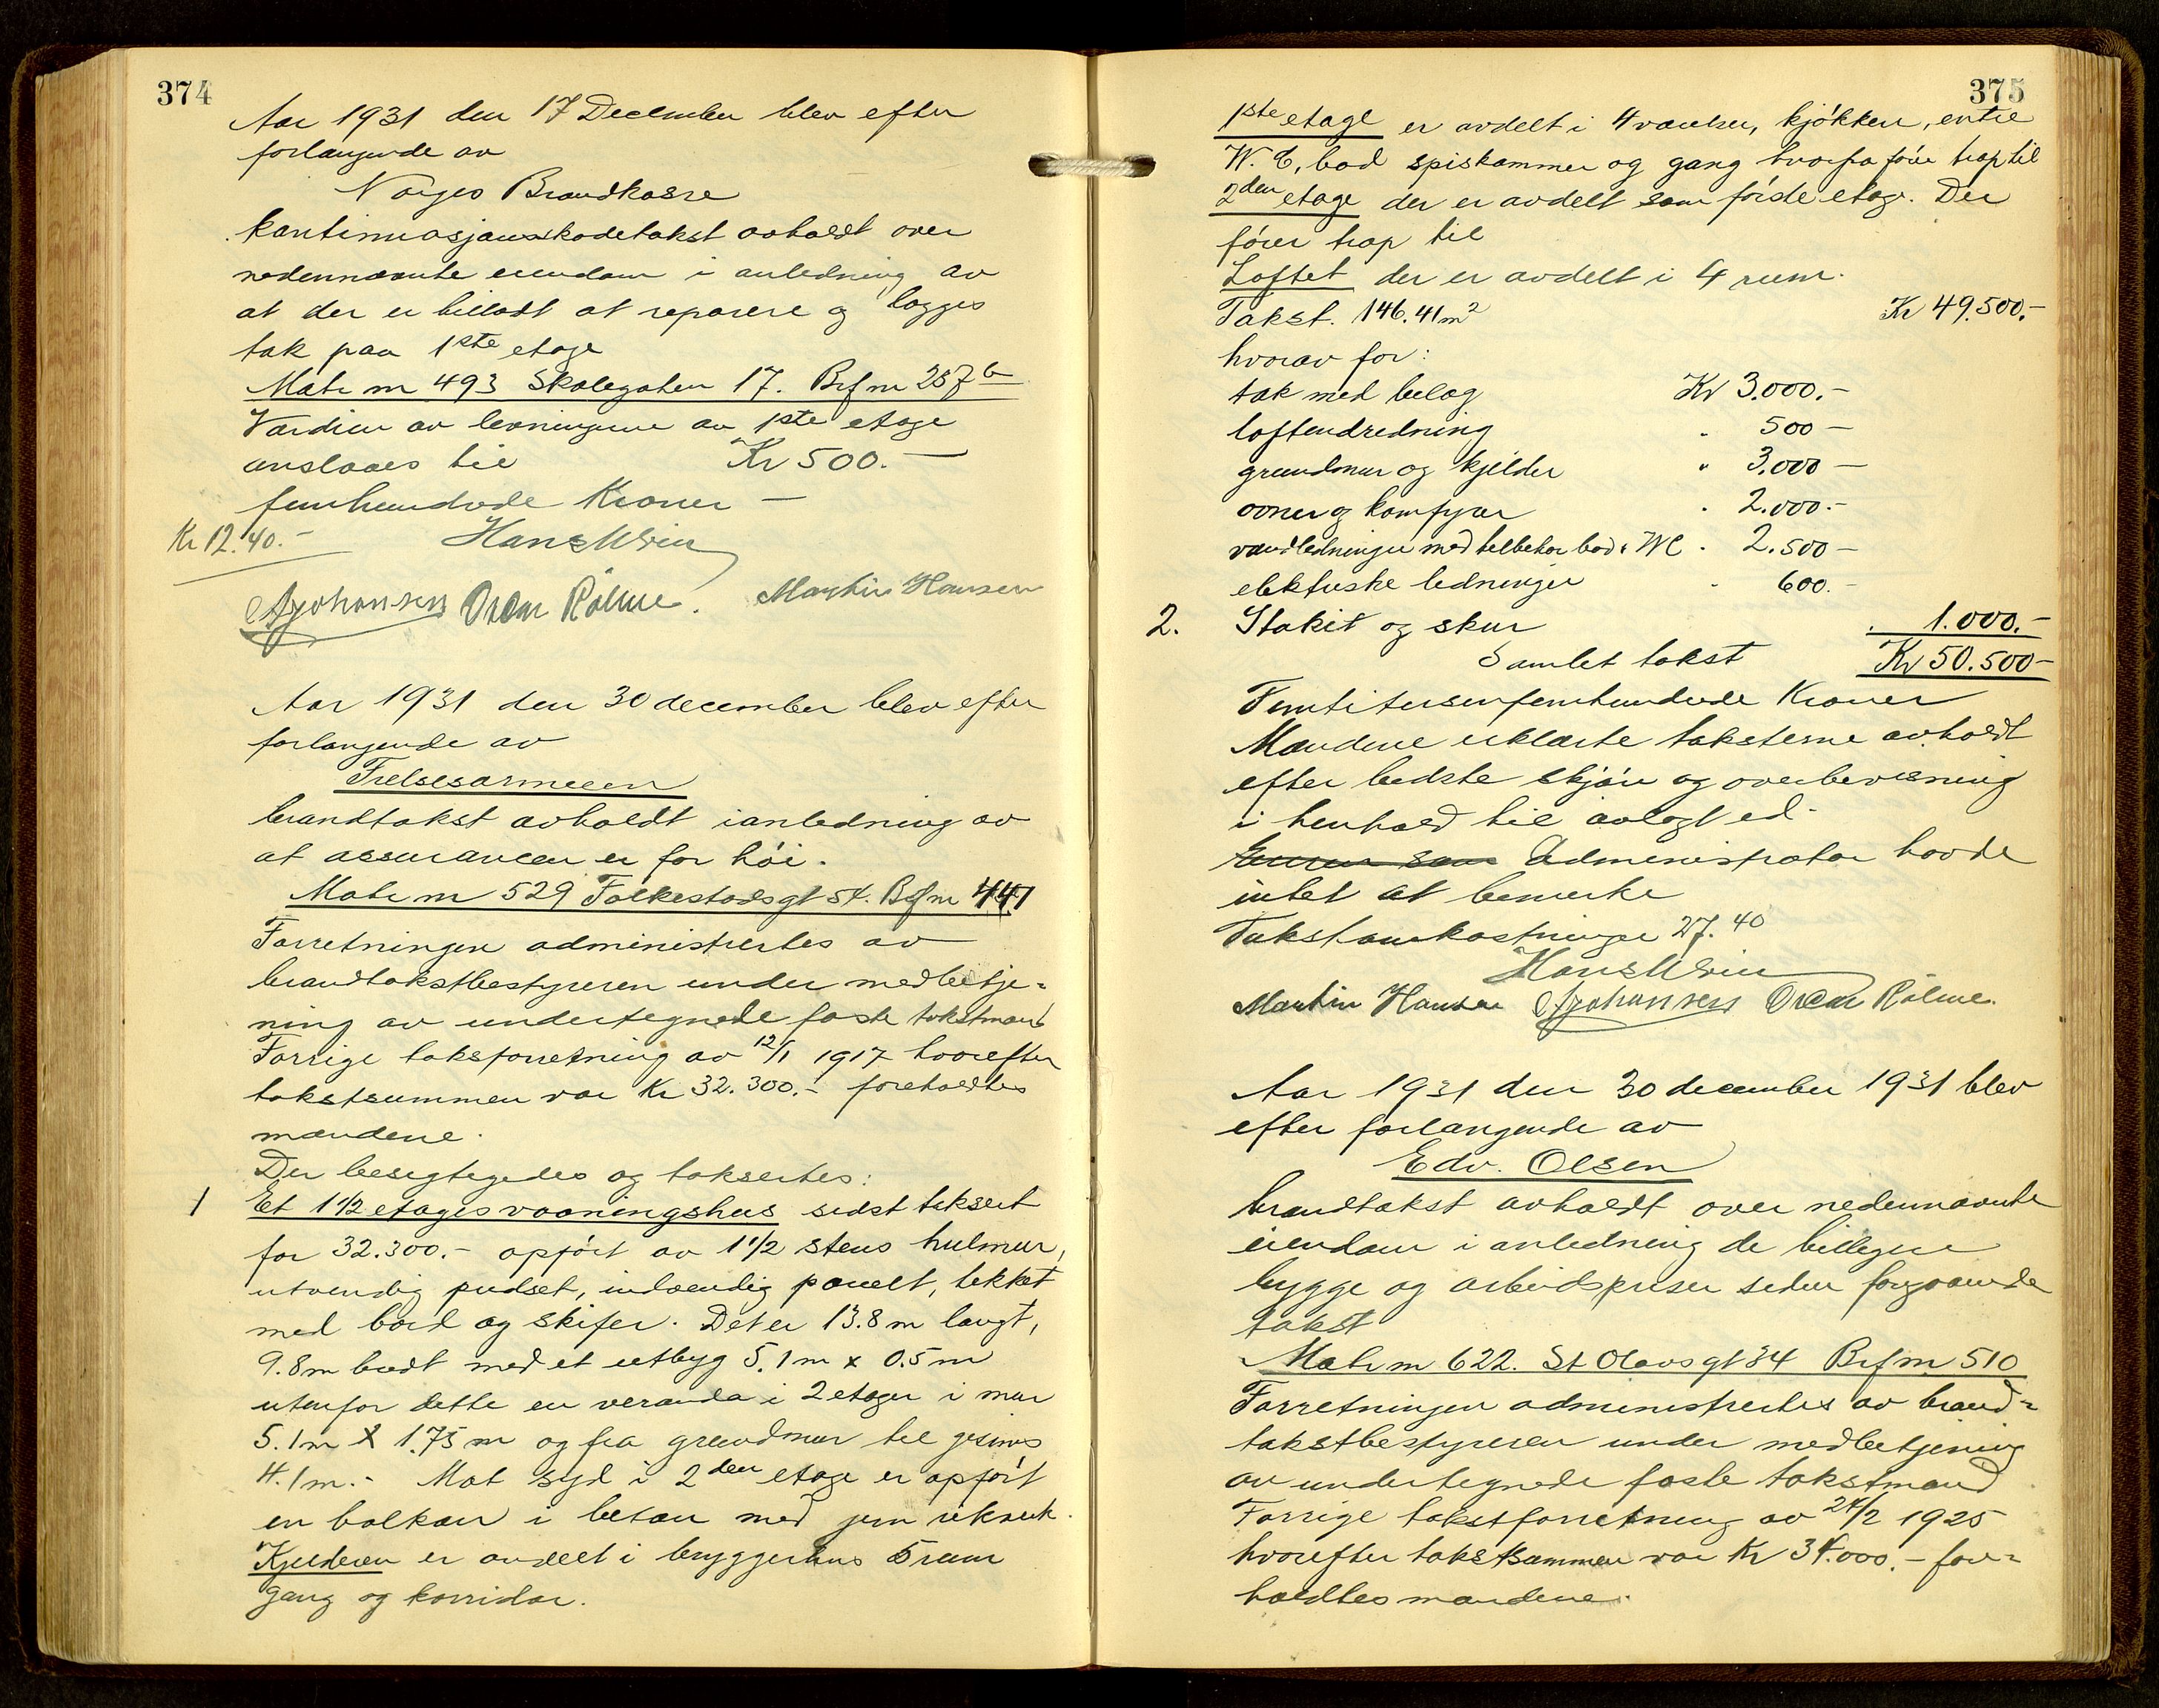 374
Aar 1931 den 17 December blev efter
forlangende av
Norges Brandkasse
kontinuasjonsskadetakst avholdt over
nedennævnte eiendom i anledning av
at der er tilladt at reparere og lægges
tak paa 1ste etage
Matr nr 493 Skolegaten 17. Brf nr 257b
Værdien av levningerne av 1ste etage
anslaaes til Kr 500.-
femhundrede Kroner -
Kr 12.40.-
A Johansen Oscar Rølme. Martin Hansen
Aar 1931 den 30 december blev efter
forlangende av
Frelsesarmeen
brandtakst avholdt i anledning av
at assurancen er for høi.
Matr nr 529 Falkestadsgt 54. Brf nr 441
Forretningen administrertes av
brandtakstbestyreren under medbetje=
ning av undertegnede faste takstmænd
Forrige taksforretning av 12/1 1917 hvorefter
takstsummen var Kr 32.300.- foreholdtes
mændene.
Der besigtigedes og taksertes:
1 Et 1 1/2 etages vaaningshus sidst taksert
for 32.300.- opført av 1 1/2 stens hulmur,
utvendig pudset, indvendig panelt, tekket
med bord og skifer. Det er 13.8 m langt,
9.8 m bredt med et utbyg 5.1 m x 0.5 m
utenfor dette en veranda i 2 etager i mur
5.1 m x 1.75 m og fra grundmur til gesims
4.1 m.- Mot syd i 2den etage er opført
en balkon i betan med jern rekverk.
Kjelderen er avdelt i bryggerhus 5 rum
gang og korridor.
375
1ste etage er avdelt i 4 værelser, kjøkken, entre
W. C, bad spiskammer og gang hvorfra fører trap til
2den etage der er avdelt som første etage. Der
fører trap til
Loftet der er avdelt i 4 rum.
Takst. 146.41 m2 Kr 49.500.-
hvorav for:
tak med belæg Kr 3.000.-
loftendredning " 500 -
grundmur og kjelder " 3.000 -
ovner og komfyrer " 2.000.-
vandledninger med tilbehør bad & WC " 2.500 -
elektriske ledninger " 600.-
2. Stakit og skur " 1.000.-
Samlet takst Kr 50.500 -
Femtitusenfemhundrede Kroner
Mændene erklærte taksterne avholdt
efter bedste skjøn og overbevisning
i henhold til avlagt ed.
Administrator havde
intet at bemerke
Takstomkostninger 27.40
Martin Hansen A Johansen Oscar Rølme.
Aar 1931 den 30 december 1931 blev
efter forlangende av
Edv. Olsen
brandtakst avholdt over nedennævnte
eiendom i anledning de billigere
bygge og arbeidspriser siden foregaaende
takst
Matr nr 622. St Olavs gt 34 Brf nr 510
Forretningen administrertes av brand=
takstbestyreren under medbetjening
av undertegnede faste takstmænd
Forrige takstforretning av 24/2 1925
hvorefter takstsummen var Kr 34.000.- fore=
holdtes mændene.